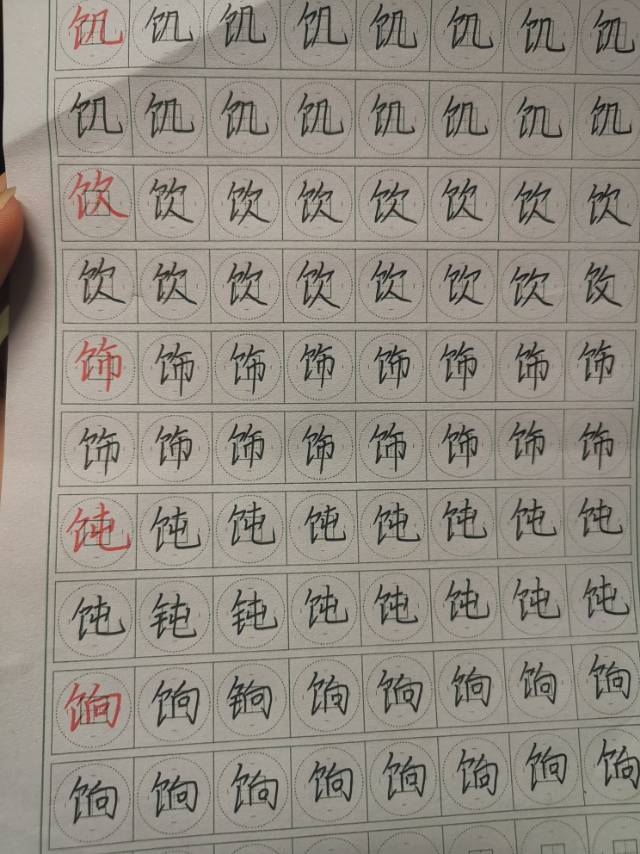 饥 饥 饥 饥 饥 饥 饥 饥
饥 饥 饥 饥 饥 饥 饥 饥
饮 饮 饮 饮 饮 饮 饮 饮
饮 饮 饮 饮 饮 饮 饮 饮
饰 饰 饰 饰 饰 饰 饰 饰
饰 饰 饰 饰 饰 饰 饰 饰
饨 饨 饨 饨 饨 饨 饨 饨
饨 钝 钝 饨 饨 饨 饨 饨
饷 饷 饷 饷 饷 饷 饷 饷
饷 饷 饷 饷 饷 饷 饷 饷